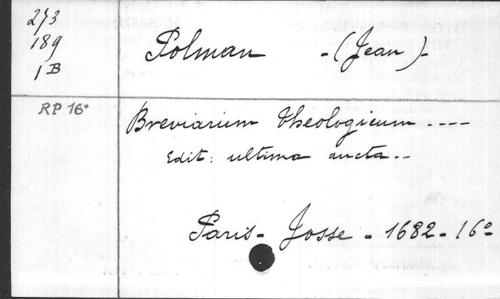 273
189
1B
Polman - (Jean)-
RP 16°
Breviarium theologicum ----
Edit: ultima aucta--
Paris- Josse - 1682-16°